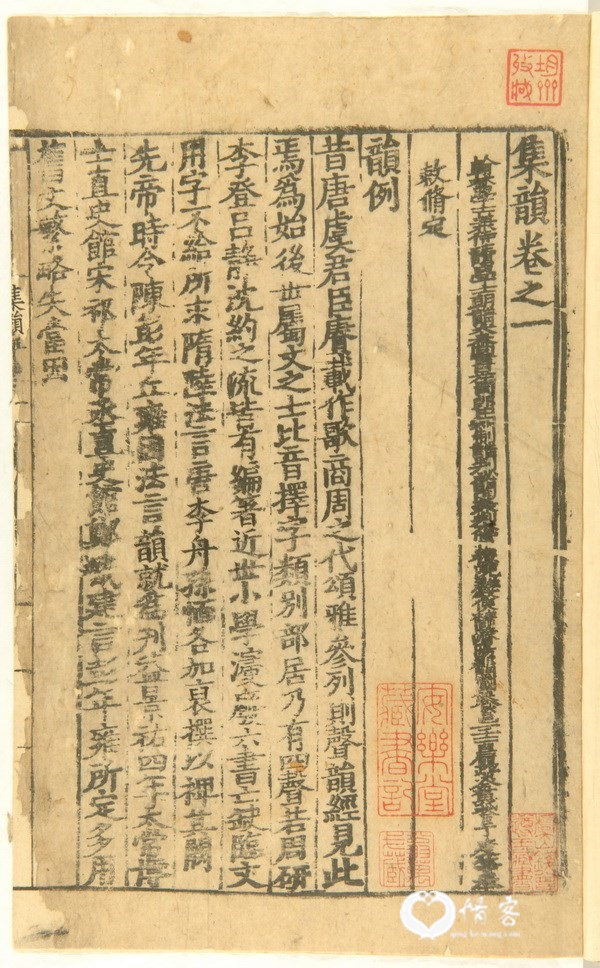 集韻卷之一
翰林學士兼侍讀學士朝請大夫尚書左司郎中知制誥判祕閣
敕脩定
韻例
昔唐虞君臣賡載作歌商周之代頌雅參列則聲韻經見此
焉爲始後世屬文之士比音擇字類別部居乃有四聲若周研
李登呂靜沈約之流皆有編著近世小學寖廢六書亡缺臨文
用字不給所求隋陸法言唐李舟孫愐各加裒撰以裨其闕
先帝時令陳彭年丘雍因法言韻就爲刊益景祐四年太常博
士直史館宋祁太常丞直史館鄭戩建言彭年雍所定多用
舊文繁略失當因
集韻
安樂堂
藏書記